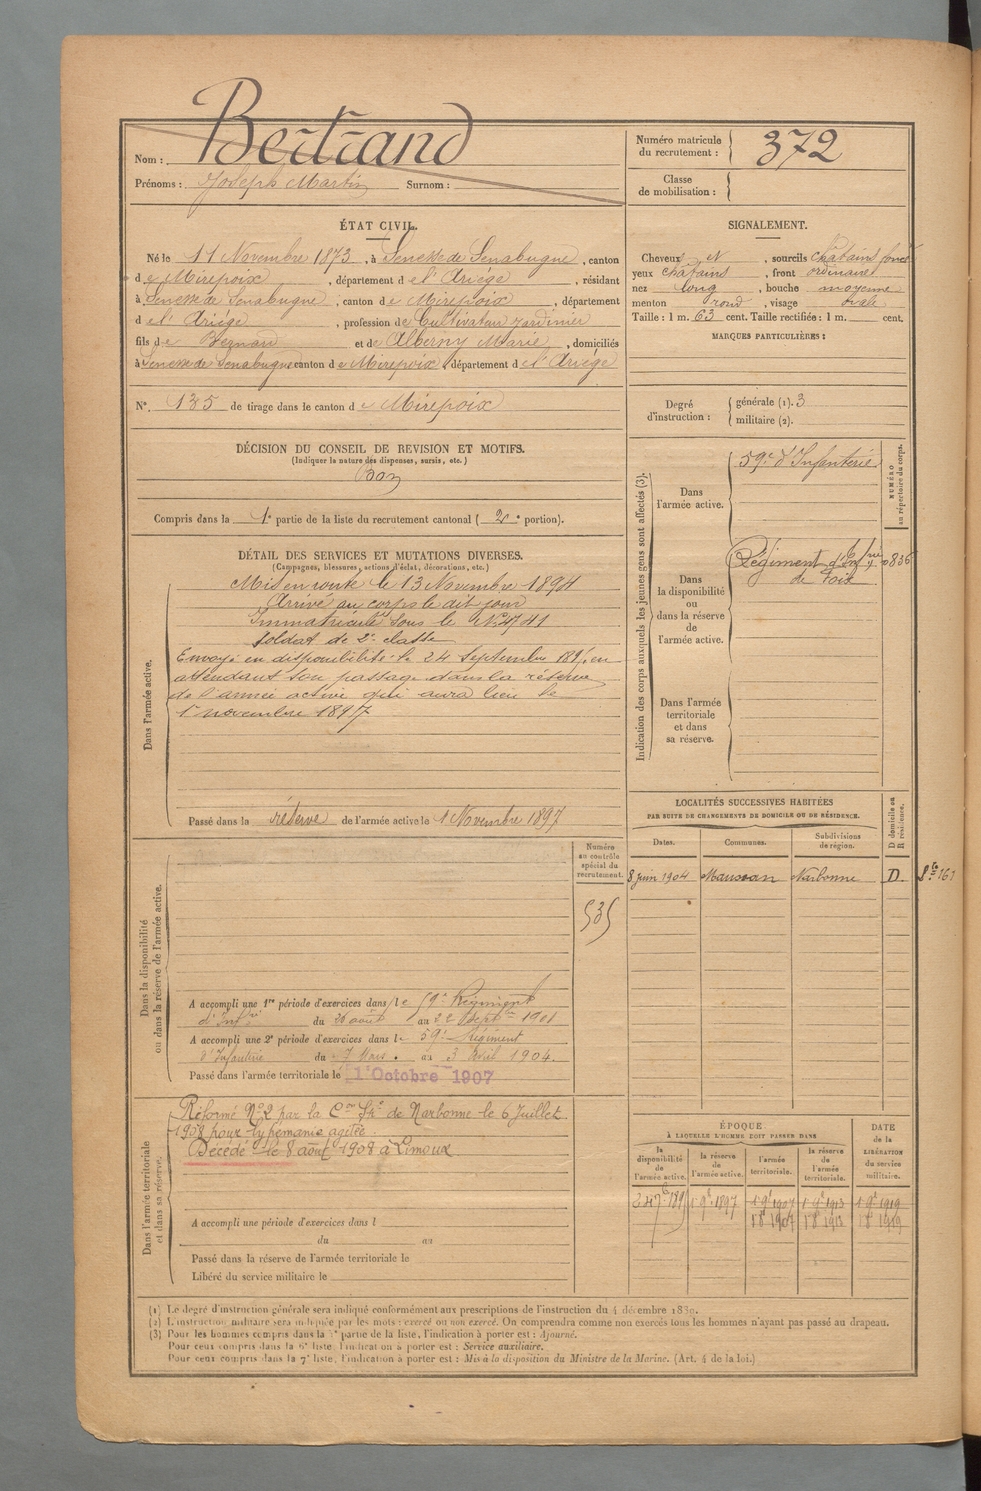 Nom : Bertrand
Prénoms : Joseph Martin Surnom :
Numéro matricule du recrutement : 372
Classe de mobilisation :
ÉTAT CIVIL.
Né le 11 Novembre 1873, à Senesse de Senabugue, canton
de Mirepoix, département de l'Ariége, résidant
à Senesse de Senabugue, canton de Mirepoix, département
de l'Ariége, profession de Cultivateur jardinier
fils de Bernard et de Alberny Marie, domiciliés
à Senesse de Senabugue canton de Mirepoix, département de l'Ariége
N° 135 de tirage dans le canton de Mirepoix
SIGNALEMENT.
Cheveux N, sourcils chatains foncé
yeux chatains, front ordinaire
nez long, bouche moyenne
menton rond, visage ovale
Taille : 1 m. 63 cent. Taille rectifiée : 1 m. cent.
MARQUES PARTICULIÈRES :
Degré d'instruction : générale (1). 3
militaire (2).
DÉCISION DU CONSEIL DE REVISION ET MOTIFS.
(Indiquer la nature des dispenses, sursis, etc.)
Bon
Compris dans la 1e partie de la liste du recrutement cantonal (2e portion).
DÉTAIL DES SERVICES ET MUTATIONS DIVERSES.
(Campagnes, blessures, actions d'éclat, décorations, etc.)
Dans l'armée active.
Mis en route le 13 Novembre 1894
Arrivé au corps le dit jour
Immatriculé sous le N°
Soldat de 2e classe
Envoyé en disponibilité le 24 Septembre en
attendant son passage dans la réserve
de l'armée active qui aura lieu le
1er novembre 1897
Passé dans la réserve de l'armée active le 1 Novembre 1897
Indication des corps auxquels les jeunes gens sont affectés (3).
NUMÉRO au répertoire du corps.
Dans l'armée active.
59e d'Infanterie
Dans la disponibilité ou dans la réserve de l'armée active.
Régiment d'Inf
de Foix
0836
Dans l'armée territoriale et dans sa réserve.
LOCALITÉS SUCCESSIVES HABITÉES
PAR SUITE DE CHANGEMENTS DE DOMICILE OU DE RÉSIDENCE.
Dates. Communes. Subdivisions de région. D domicile ou R résidence.
8 juin 1904 Narbonne D. 161
Dans la disponibilité ou dans la réserve de l'armée active.
Numéro au contrôle spécial du recrutement.
535
A accompli une 1re période d'exercices dans le 59e Régiment
d'Infie du 26 août au 22 Septbre 1901
A accompli une 2e période d'exercices dans le 59e Régiment
d'Infanterie du 7 Mars au 3 Avril 1904.
Passé dans l'armée territoriale le 1er Octobre 1907
Dans l'armée territoriale et dans sa réserve.
Réformé N° 2 par la Con Sple de Narbonne le 6 Juillet
1908 pour lypemanie agitée
Décédé le 8 août 1908 à Limoux
A accompli une période d'exercices dans l
du au
Passé dans la réserve de l'armée territoriale le
Libéré du service militaire le
ÉPOQUE
À LAQUELLE L'HOMME DOIT PASSER DANS
DATE de la LIBÉRATION du service militaire.
la disponibilité de l'armée active. la réserve de l'armée active. l'armée territoriale. la réserve de l'armée territoriale.
1897 1907 1913 1919
1907 1913 1919
(1) Le degré d'instruction générale sera indiqué conformément aux prescriptions de l'instruction du 4 décembre 1889.
(2) L'instruction militaire sera indiquée par les mots : exercé ou non exercé. On comprendra comme non exercés tous les hommes n'ayant pas passé au drapeau.
(3) Pour les hommes compris dans la partie de la liste, l'indication à porter est : Ajourné.
Pour ceux compris dans la 6e liste, l'indication à porter est : Service auxiliaire.
Pour ceux compris dans la 7e liste, l'indication à porter est : Mis à la disposition du Ministre de la Marine. (Art. 4 de la loi.)